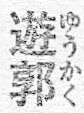 遊郭
ゆうかく